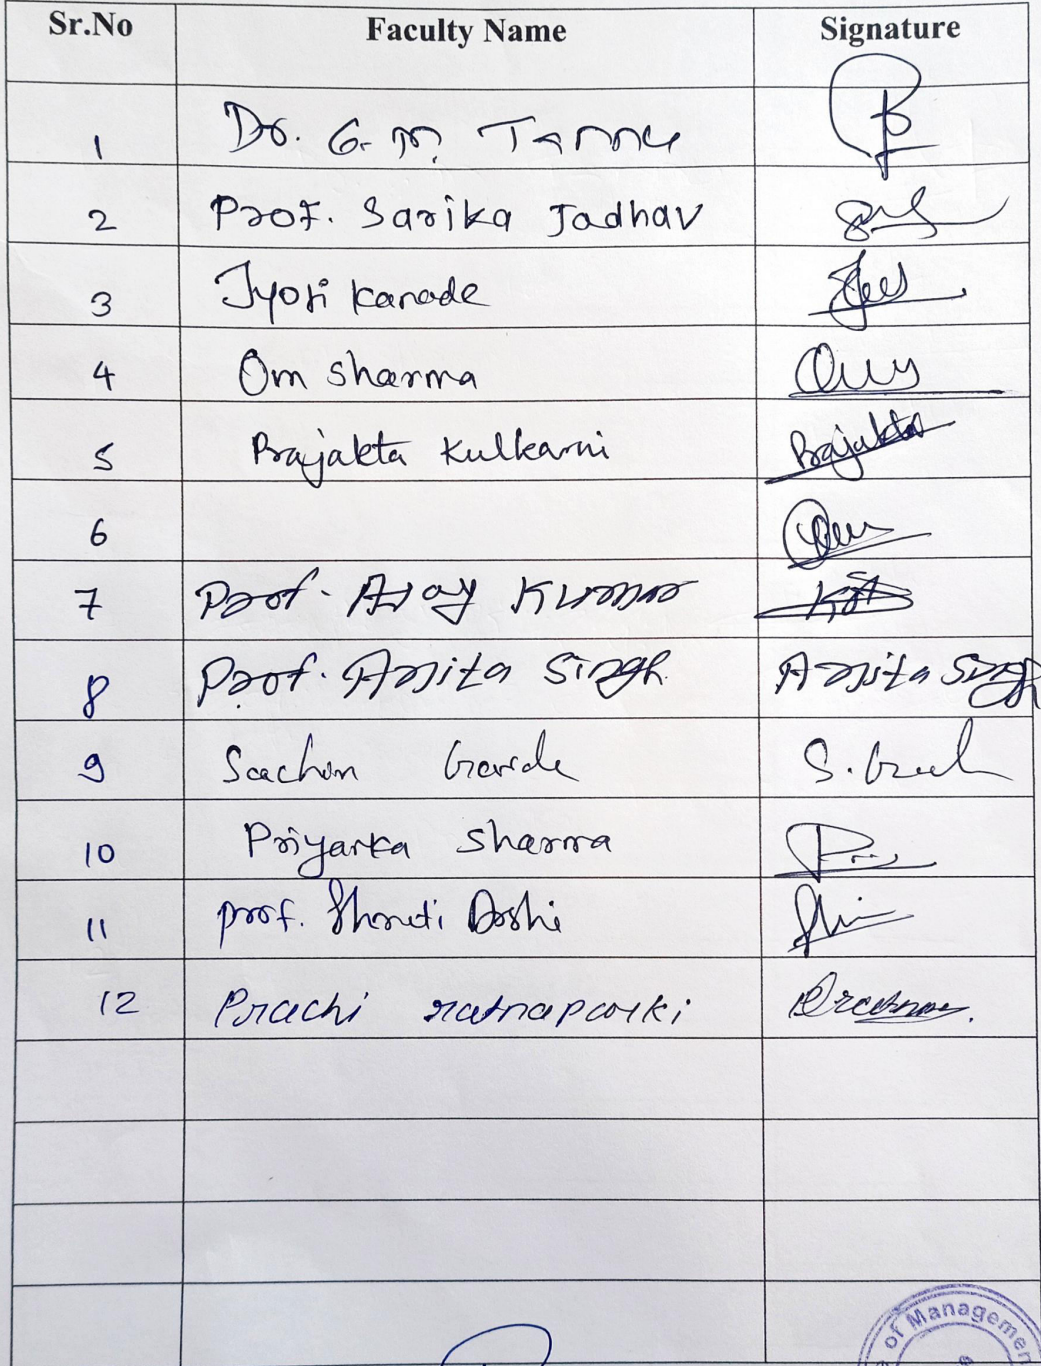 Sr.No Faculty Name Signature
1 Dr. G. M.
2 Prof. Sarika Jadhav
3 Jyoti Kanade
4 Om Sharma
5 Prajakta Kulkarni Prajakta
6
7 Prof. Ajay Kumar
8 Prof. Arjita Singh Arjita Singh
9 Sachin
10 Priyanka Sharma
11 Prof. Shruti Doshi
12 Prachi ratnaparki
of Managemen